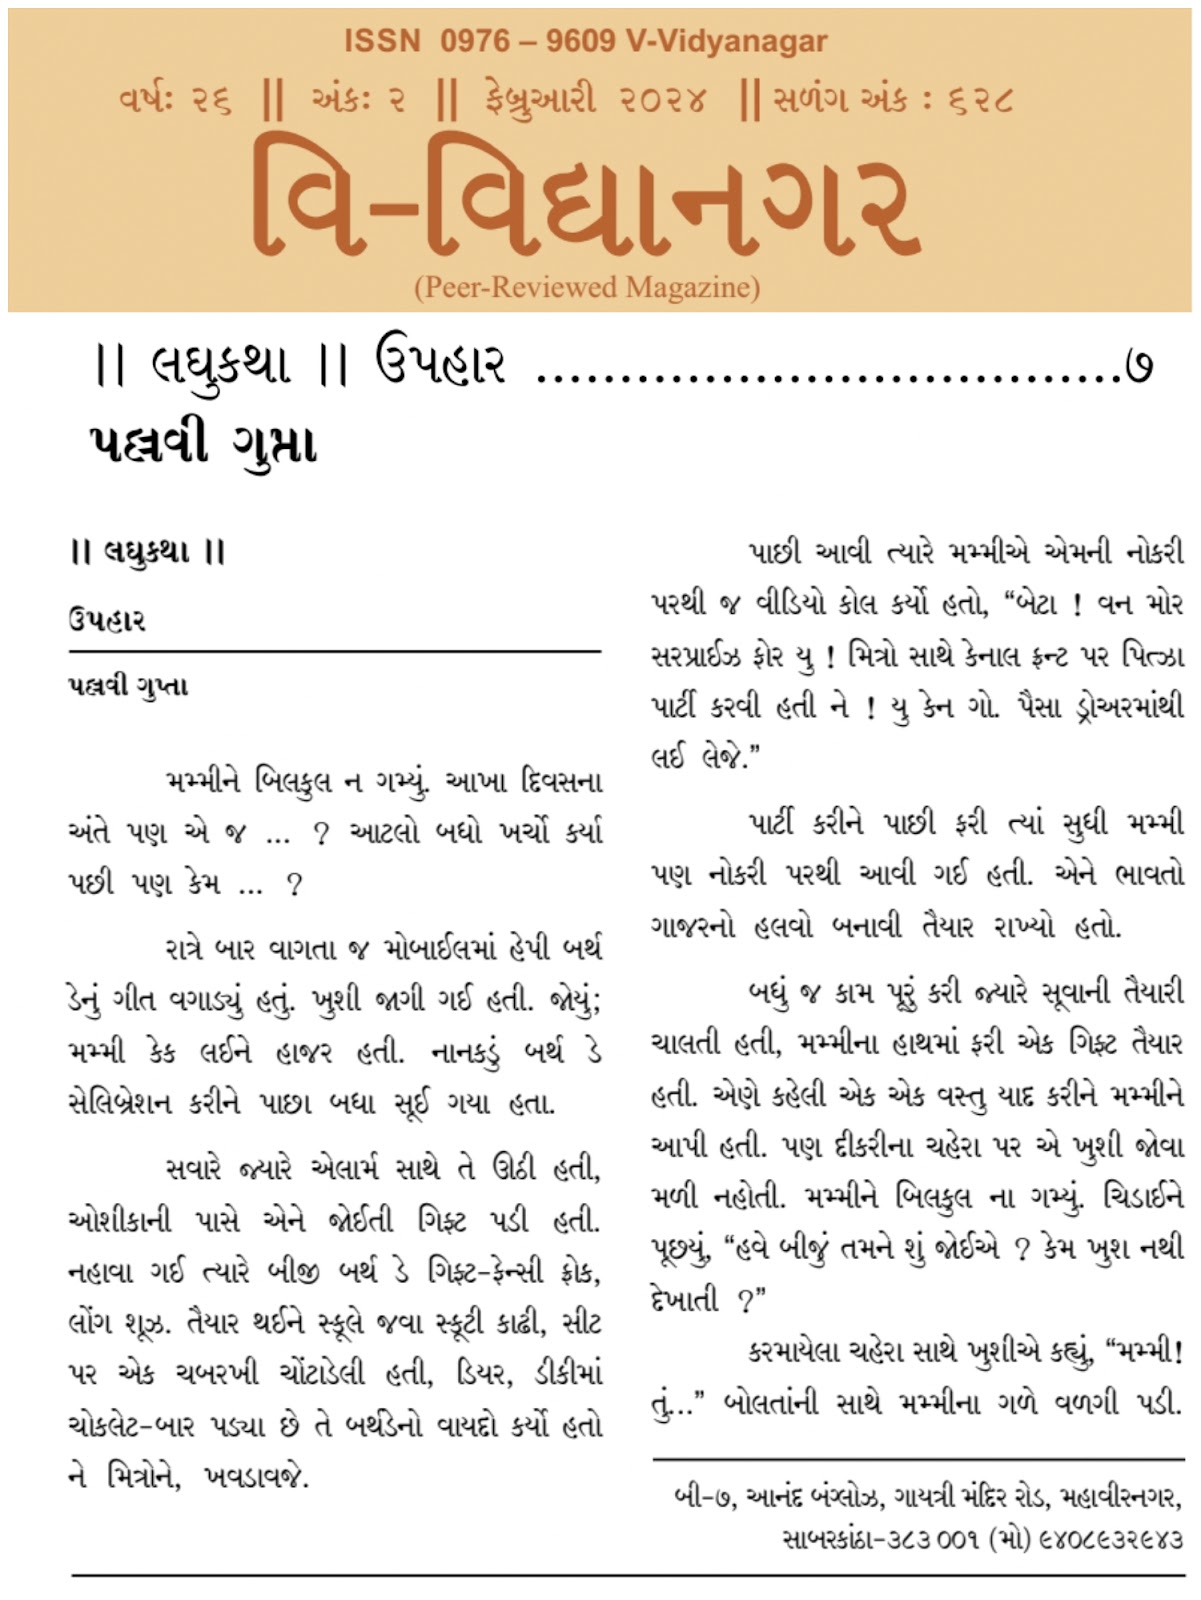 ISSN 0976 – 9609 V-Vidyanagar
વર્ષઃ ૨૬ || અંકઃ ૨ || ફેબ્રુઆરી ૨૦૨૪ || સળંગ અંક : ૬૨૮
વિ-વિદ્યાનગર
(Peer-Reviewed Magazine)
|| લઘુકથા || ઉપહાર ...................................૭
પલ્લવી ગુપ્તા
|| લઘુકથા ||
ઉપહાર
પલ્લવી ગુપ્તા
મમ્મીને બિલકુલ ન ગમ્યું. આખા દિવસના
અંતે પણ એ જ ... ? આટલો બધો ખર્ચો કર્યા
પછી પણ કેમ ... ?
રાત્રે બાર વાગતા જ મોબાઈલમાં હેપી બર્થ
ડેનું ગીત વગાડ્યું હતું. ખુશી જાગી ગઈ હતી. જોયું;
મમ્મી કેક લઈને હાજર હતી. નાનકડું બર્થ ડે
સેલિબ્રેશન કરીને પાછા બધા સૂઈ ગયા હતા.
સવારે જ્યારે એલાર્મ સાથે તે ઊઠી હતી,
ઓશીકાની પાસે એને જોઈતી ગિફ્ટ પડી હતી.
નહાવા ગઈ ત્યારે બીજી બર્થ ડે ગિફ્ટ-ફેન્સી ફ્રોક,
લોંગ શૂઝ. તૈયાર થઈને સ્કૂલે જવા સ્કૂટી કાઢી, સીટ
પર એક ચબરખી ચોંટાડેલી હતી, ડિયર, ડીકીમાં
ચોકલેટ-બાર પડ્યા છે તે બર્થડેનો વાયદો કર્યો હતો
ને મિત્રોને, ખવડાવજે.
પાછી આવી ત્યારે મમ્મીએ એમની નોકરી
પરથી જ વીડિયો કોલ કર્યો હતો, “બેટા ! વન મોર
સરપ્રાઈઝ ફોર યુ ! મિત્રો સાથે કેનાલ ફ્રન્ટ પર પિત્ઝા
પાર્ટી કરવી હતી ને ! યુ કેન ગો. પૈસા ડ્રોઅરમાંથી
લઈ લેજે.”
પાર્ટી કરીને પાછી ફરી ત્યાં સુધી મમ્મી
પણ નોકરી પરથી આવી ગઈ હતી. એને ભાવતો
ગાજરનો હલવો બનાવી તૈયાર રાખ્યો હતો.
બધું જ કામ પૂરું કરી જ્યારે સૂવાની તૈયારી
ચાલતી હતી, મમ્મીના હાથમાં ફરી એક ગિફ્ટ તૈયાર
હતી. એણે કહેલી એક એક વસ્તુ યાદ કરીને મમ્મીને
આપી હતી. પણ દીકરીના ચહેરા પર એ ખુશી જોવા
મળી નહોતી. મમ્મીને બિલકુલ ના ગમ્યું. ચિડાઈને
પૂછયું, “હવે બીજું તમને શું જોઈએ ? કેમ ખુશ નથી
દેખાતી ?”
કરમાયેલા ચહેરા સાથે ખુશીએ કહ્યું, “મમ્મી!
તું...” બોલતાંની સાથે મમ્મીના ગળે વળગી પડી.
બી-૭, આનંદ બંગ્લોઝ, ગાયત્રી મંદિર રોડ, મહાવીરનગર,
સાબરકાંઠા-૩૮૩ ૦૦૧ (મો) ૯૪૦૮૯૩૨૯૪૩